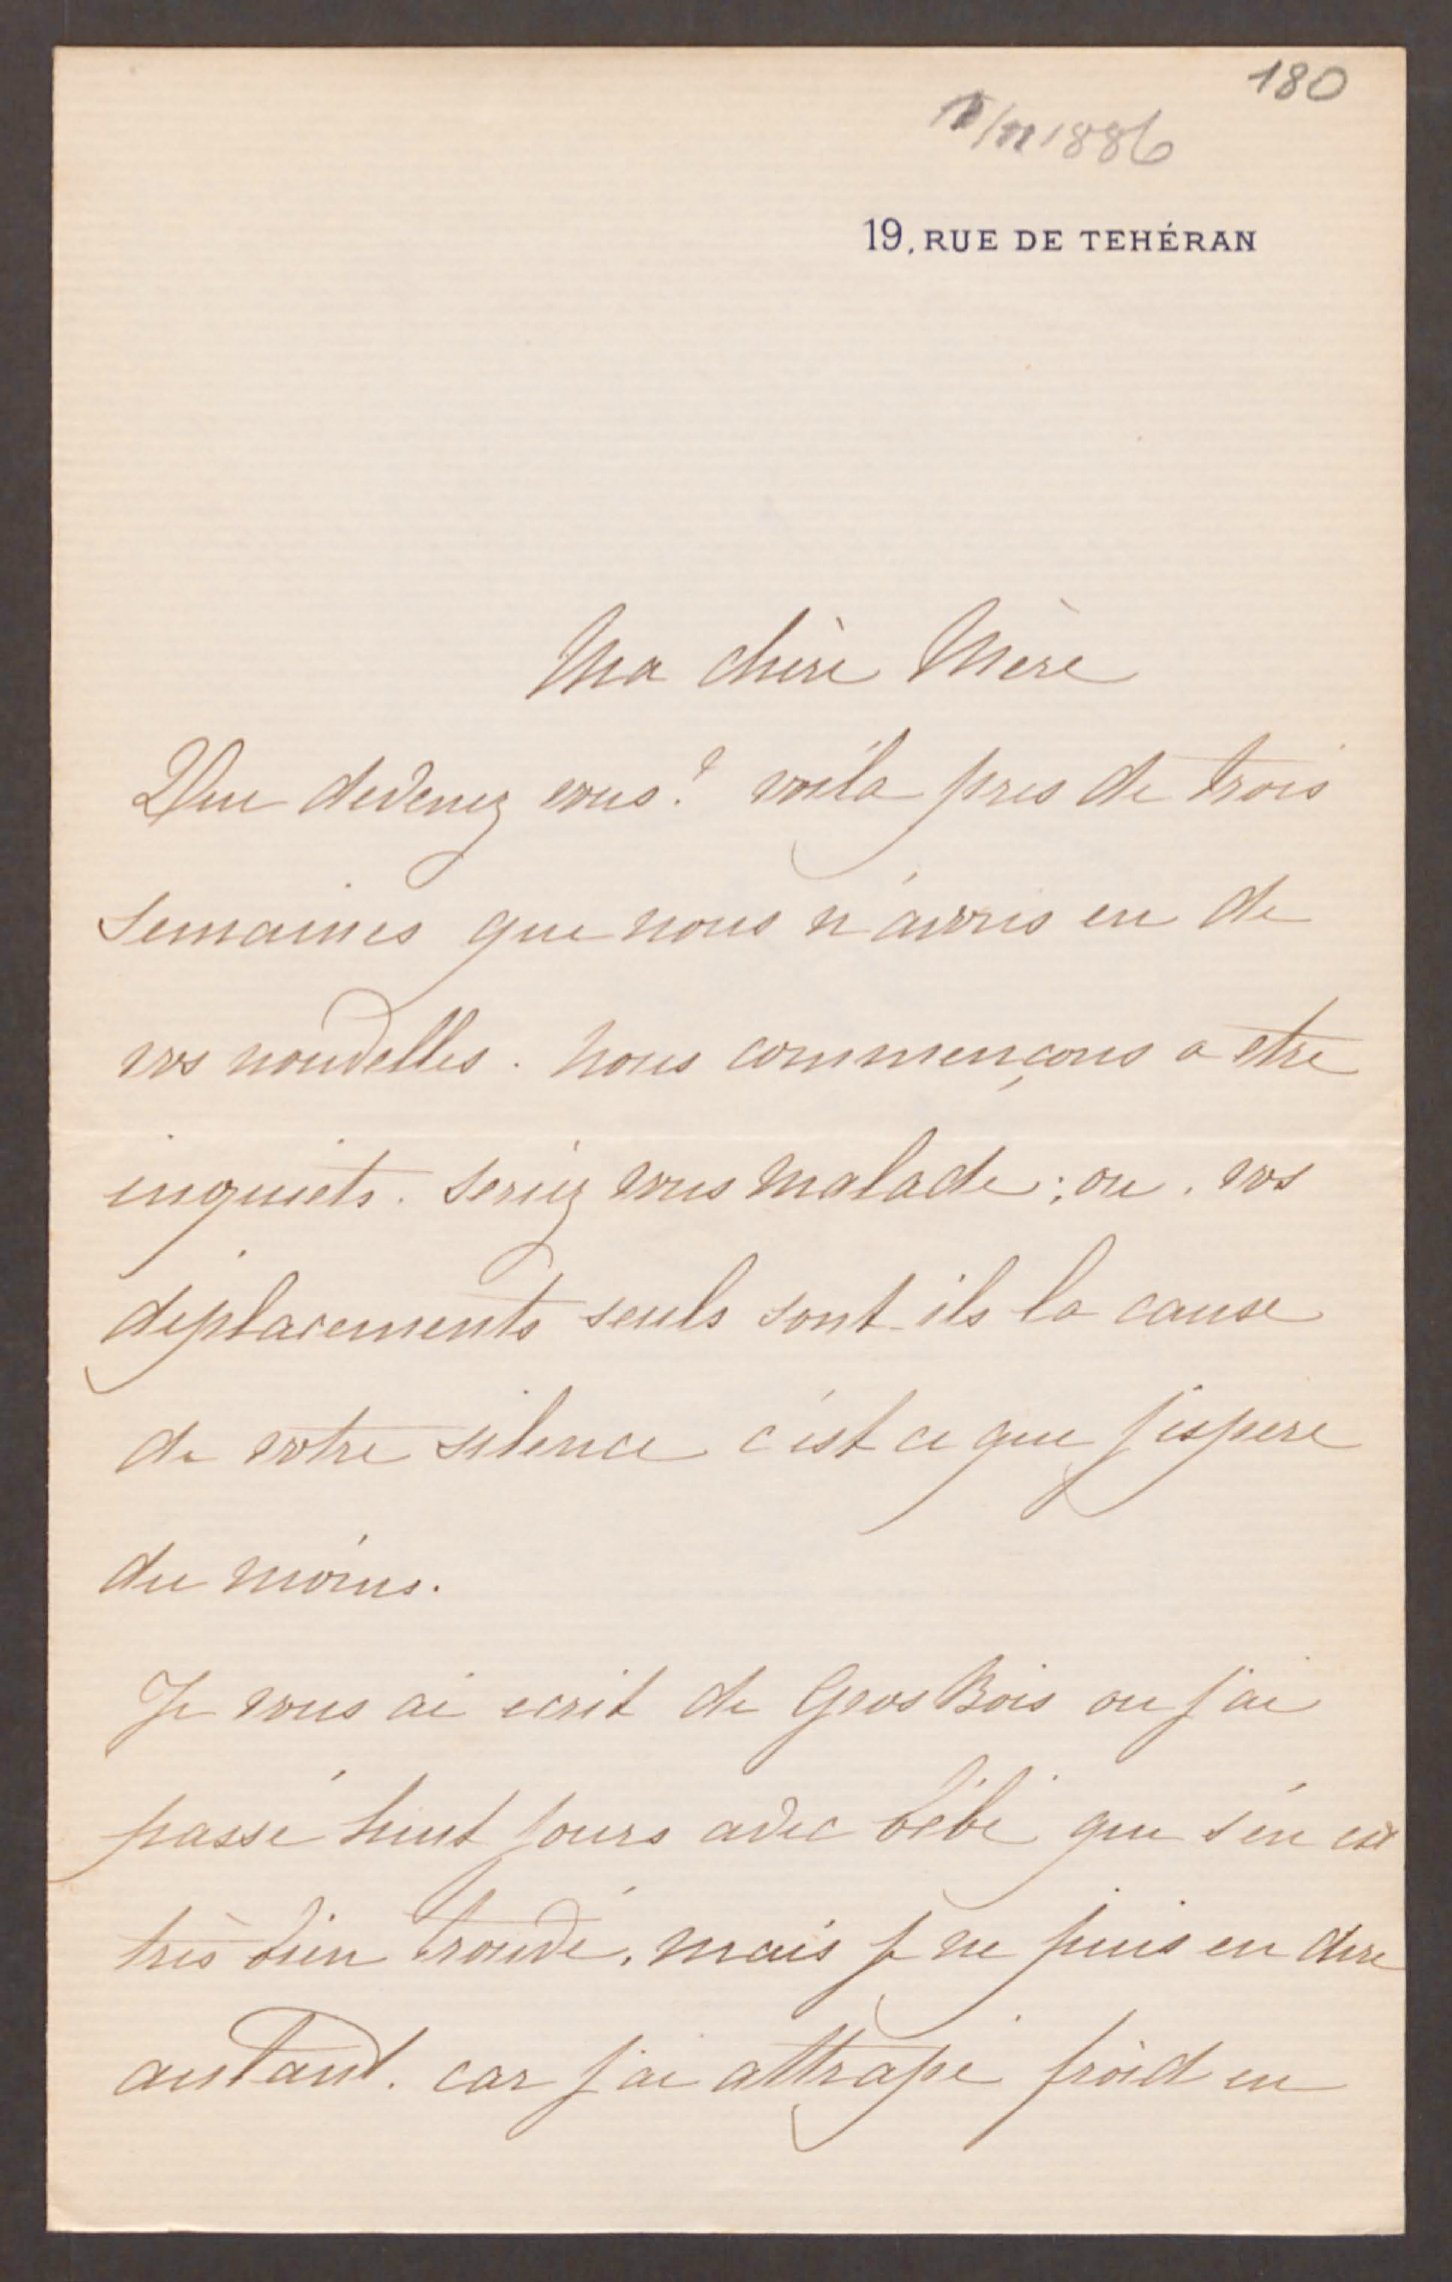 180
1886
19, RUE DE TEHÉRAN
Ma chère Mère
Que devenez vous? voila pres de trois
semaines que nous n'avons eu de
vos nouvelles. Nous commençons a etre
inquiets. Seriez vous malade; ou. vos
déplacements seuls sont-ils la cause
de votre silence c'est ce que j'espere
du moins.
Je vous ai ecrit de GrosBois ou j'ai
passé huit jours avec bébé qui s'en est
très bien trouvé. mais je ne puis en dire
autant. car j'ai attrapé froid en